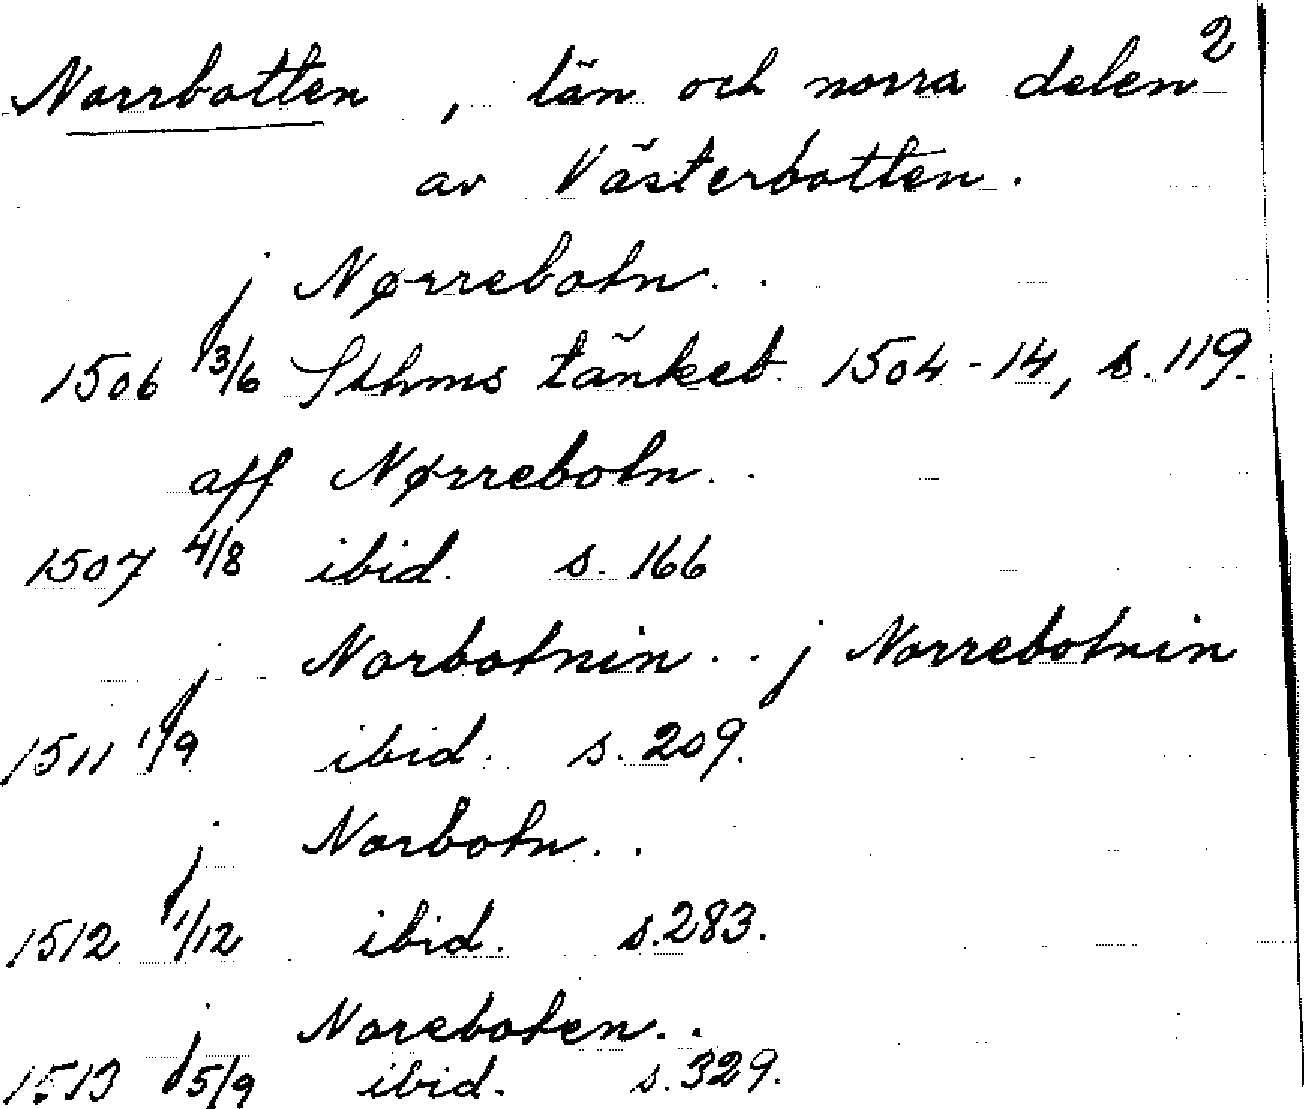 2
Norrbotten , län och norra delen
av Västerbotten.
j Nørrebotn..
1506 13/6 Sthms tänkeb. 1504-14, s. 119.
aff Nørrebotn..
1507 4/8 ibid. s. 166
j Norbotnin.. j Norrebotnin
1511 1/9 ibid. s. 209.
j Norbotn..
1512 1/12 ibid. s. 283.
j Noreboten..
1513 5/9 ibid. s. 329.